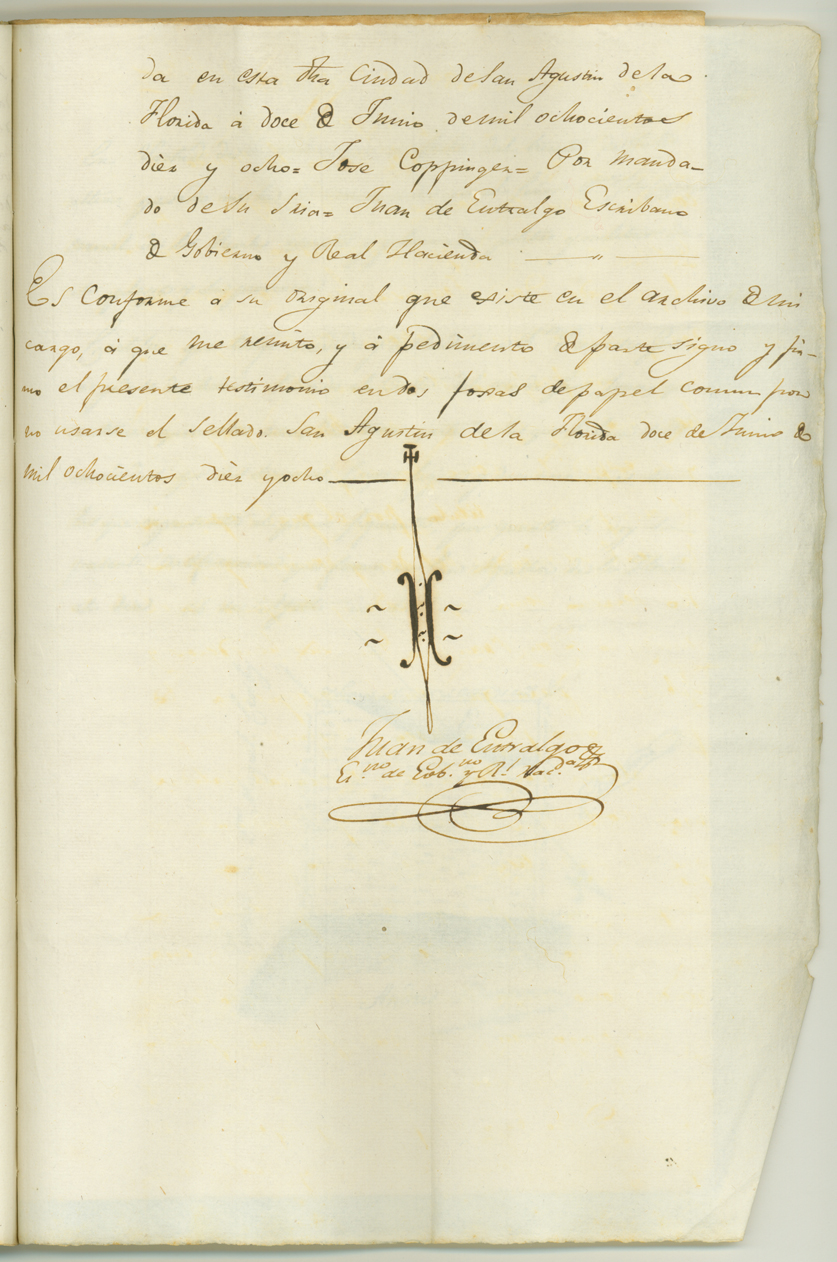 da en esta dha Ciudad de San Agustin de la
Florida á doce de Junio de mil ochocientos
diez y ocho = Jose Coppinger = Por manda-
do de Su Sria = Juan de Entralgo Escribano
de Gobierno y Real Hacienda
Es conforme a su original que existe en el archivo de mi
cargo, á que me remito, y á pedimento de parte signo y fir-
mo el presente testimonio en dos foxas de papel comun por
no usarse el Sellado. San Agustin de la Florida doce de Junio de
mil ochocientos diez y ocho
Juan de Entralgo
Es.no de Gob.no y R.l Hac.da